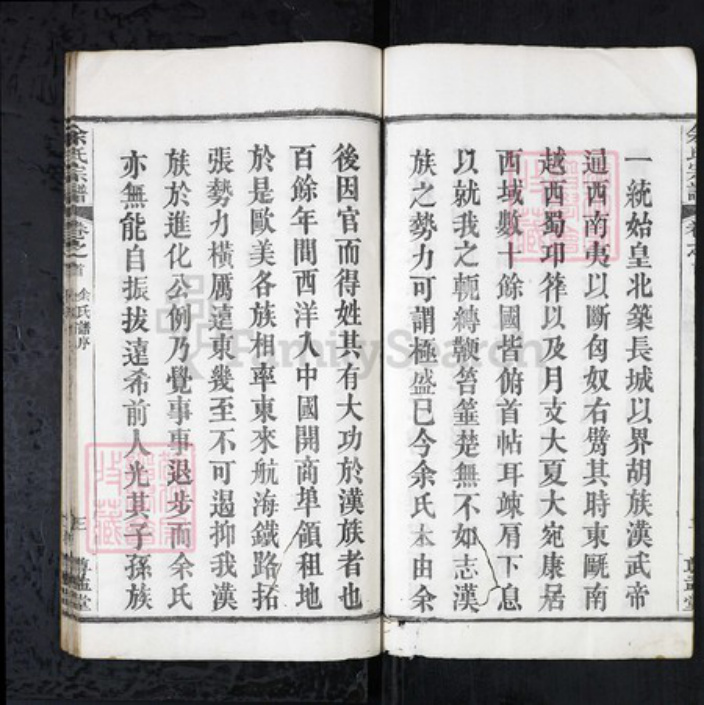 一統始皇北築長城以界胡族漢武帝
逈西南夷以斷匈奴右臂其時東甌南
越西蜀卭筰以及月支大夏大宛康居
西域數十餘國皆俯首帖耳竦肩下息
以就我之軛縳鞭笞箠楚無不如志漢
族之勢力可謂極盛已今余氏本由余
後因官而得姓其有大功於漢族者也
百餘年間西洋入中國開商埠領租地
於是歐美各族相率東來航海鐵路拓
張勢力橫厲遠東幾至不可遏抑我漢
族於進化公例乃覺事事退步而余氏
亦無能自振拔遠希前人光其子孫族
余氏宗譜
卷之首
余氏譜序
三
FamilySearch